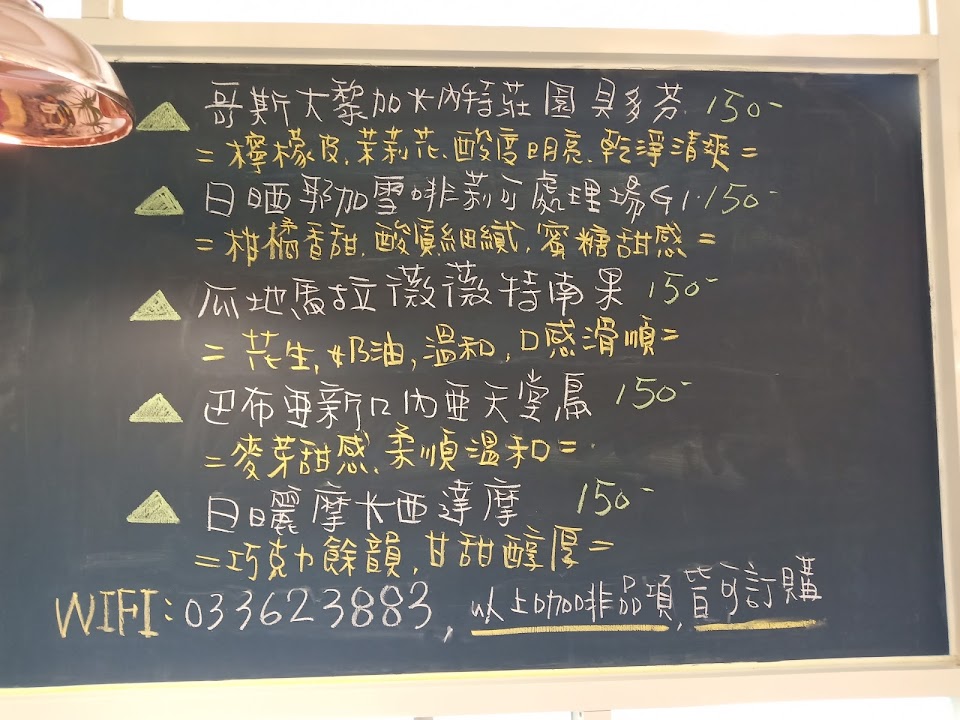 哥斯大黎加卡內特莊園貝多芬 150-
=檸檬皮.茉莉花.酸度明亮.乾淨清爽=
日晒耶加雪啡莉可處理場G1.150-
=柑橘香甜.酸質細緻,蜜糖甜感=
瓜地馬拉薇薇特南果 150-
=花生,奶油,溫和,口感滑順=
巴布亞新口內亞天堂鳥 150-
=麥芽甜感.柔順溫和=
日曬摩卡西達摩 150-
=巧克力餘韻,甘甜醇厚=
WIFI:033623883,以上咖啡品項,皆可訂購